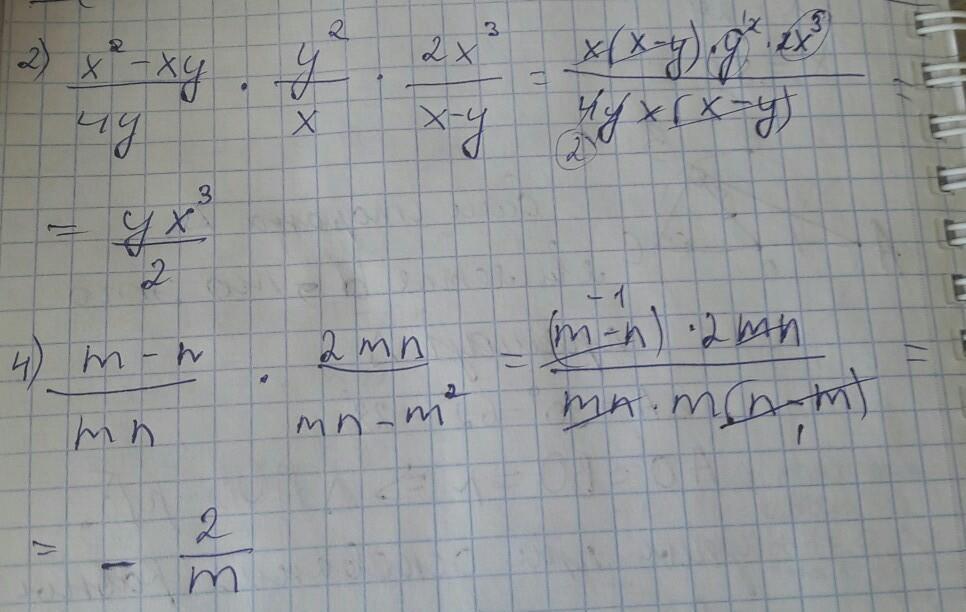 2) (x² - xy)/(4y) · y²/x · 2x³/(x-y) = (x(x-y) · y² · 2x³)/(4y x (x-y)) =
= yx³/2
4) (m - n)/(mn) · 2mn/(mn - m²) = ((m-n) · 2mn)/(mn · m(n-m)) =
= - 2/m